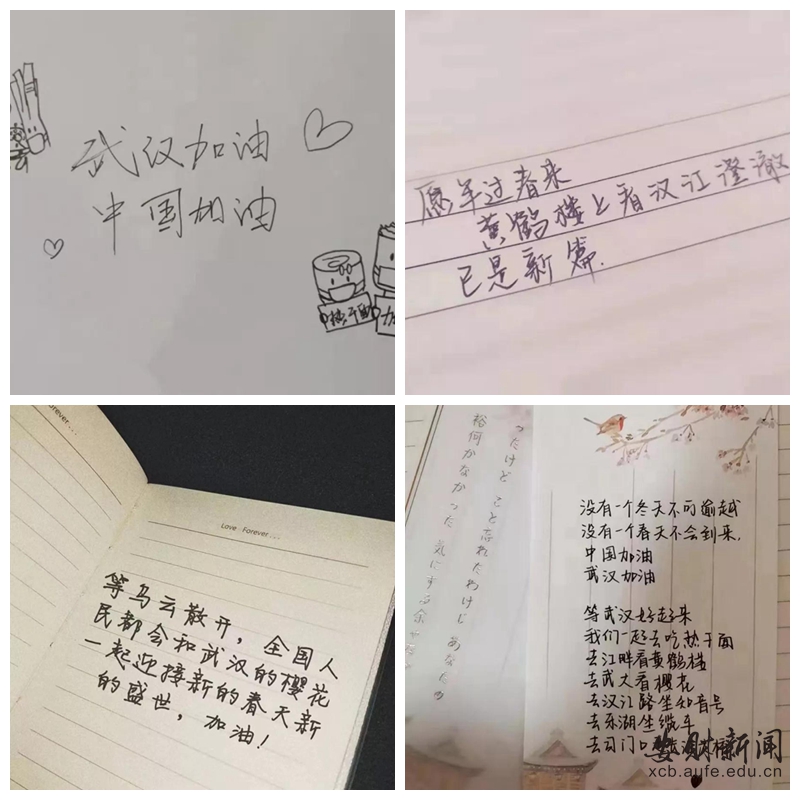 武汉加油
中国加油
热干面
加
愿年过春来
黄鹤楼上看汉江澄澈
已是新篇.
Forever...
Love Forever...
等乌云散开，全国人
民都会和武汉的樱花
一起迎接新的春天新
的盛世，加油！
没有一个冬天不可逾越
没有一个春天不会到来.
中国加油
武汉加油
等武汉好起来
我们一起去吃热干面
去江畔看黄鹤楼
去武大看樱花
去汉江路坐知音号
去东湖坐缆车
去司门口
ったけど こと忘れたわけじ あなため
裕何かなかった 気にする余
安财新闻
xcb.aufe.edu.cn